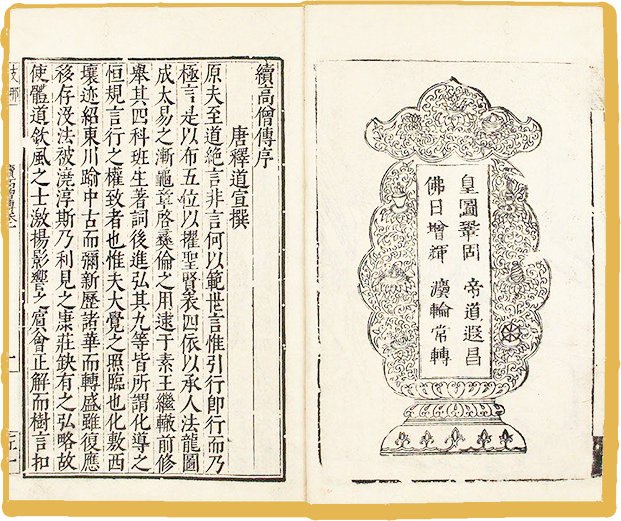 皇圖鞏固 帝道遐昌
佛日增輝 灋輪常轉
續高僧傳序
唐釋道宣撰
原夫至道絶言非言何以範世言惟引行即行而乃
極言是以布五位以擢聖賢表四依以承人法龍圖
成太易之漸龜章啓彝倫之用逮于素王繼轍前修
舉其四科班生著詞後進弘其九等皆所謂化導之
恒規言行之權致者也惟夫大覺之照臨也化敷西
壤迹紹東川踰中古而彌新歷諸華而轉盛雖復應
移存没法被澆淳斯乃利見之康莊缺有之弘略故
使體道欽風之士激揚影響之賓會正解而樹言扣